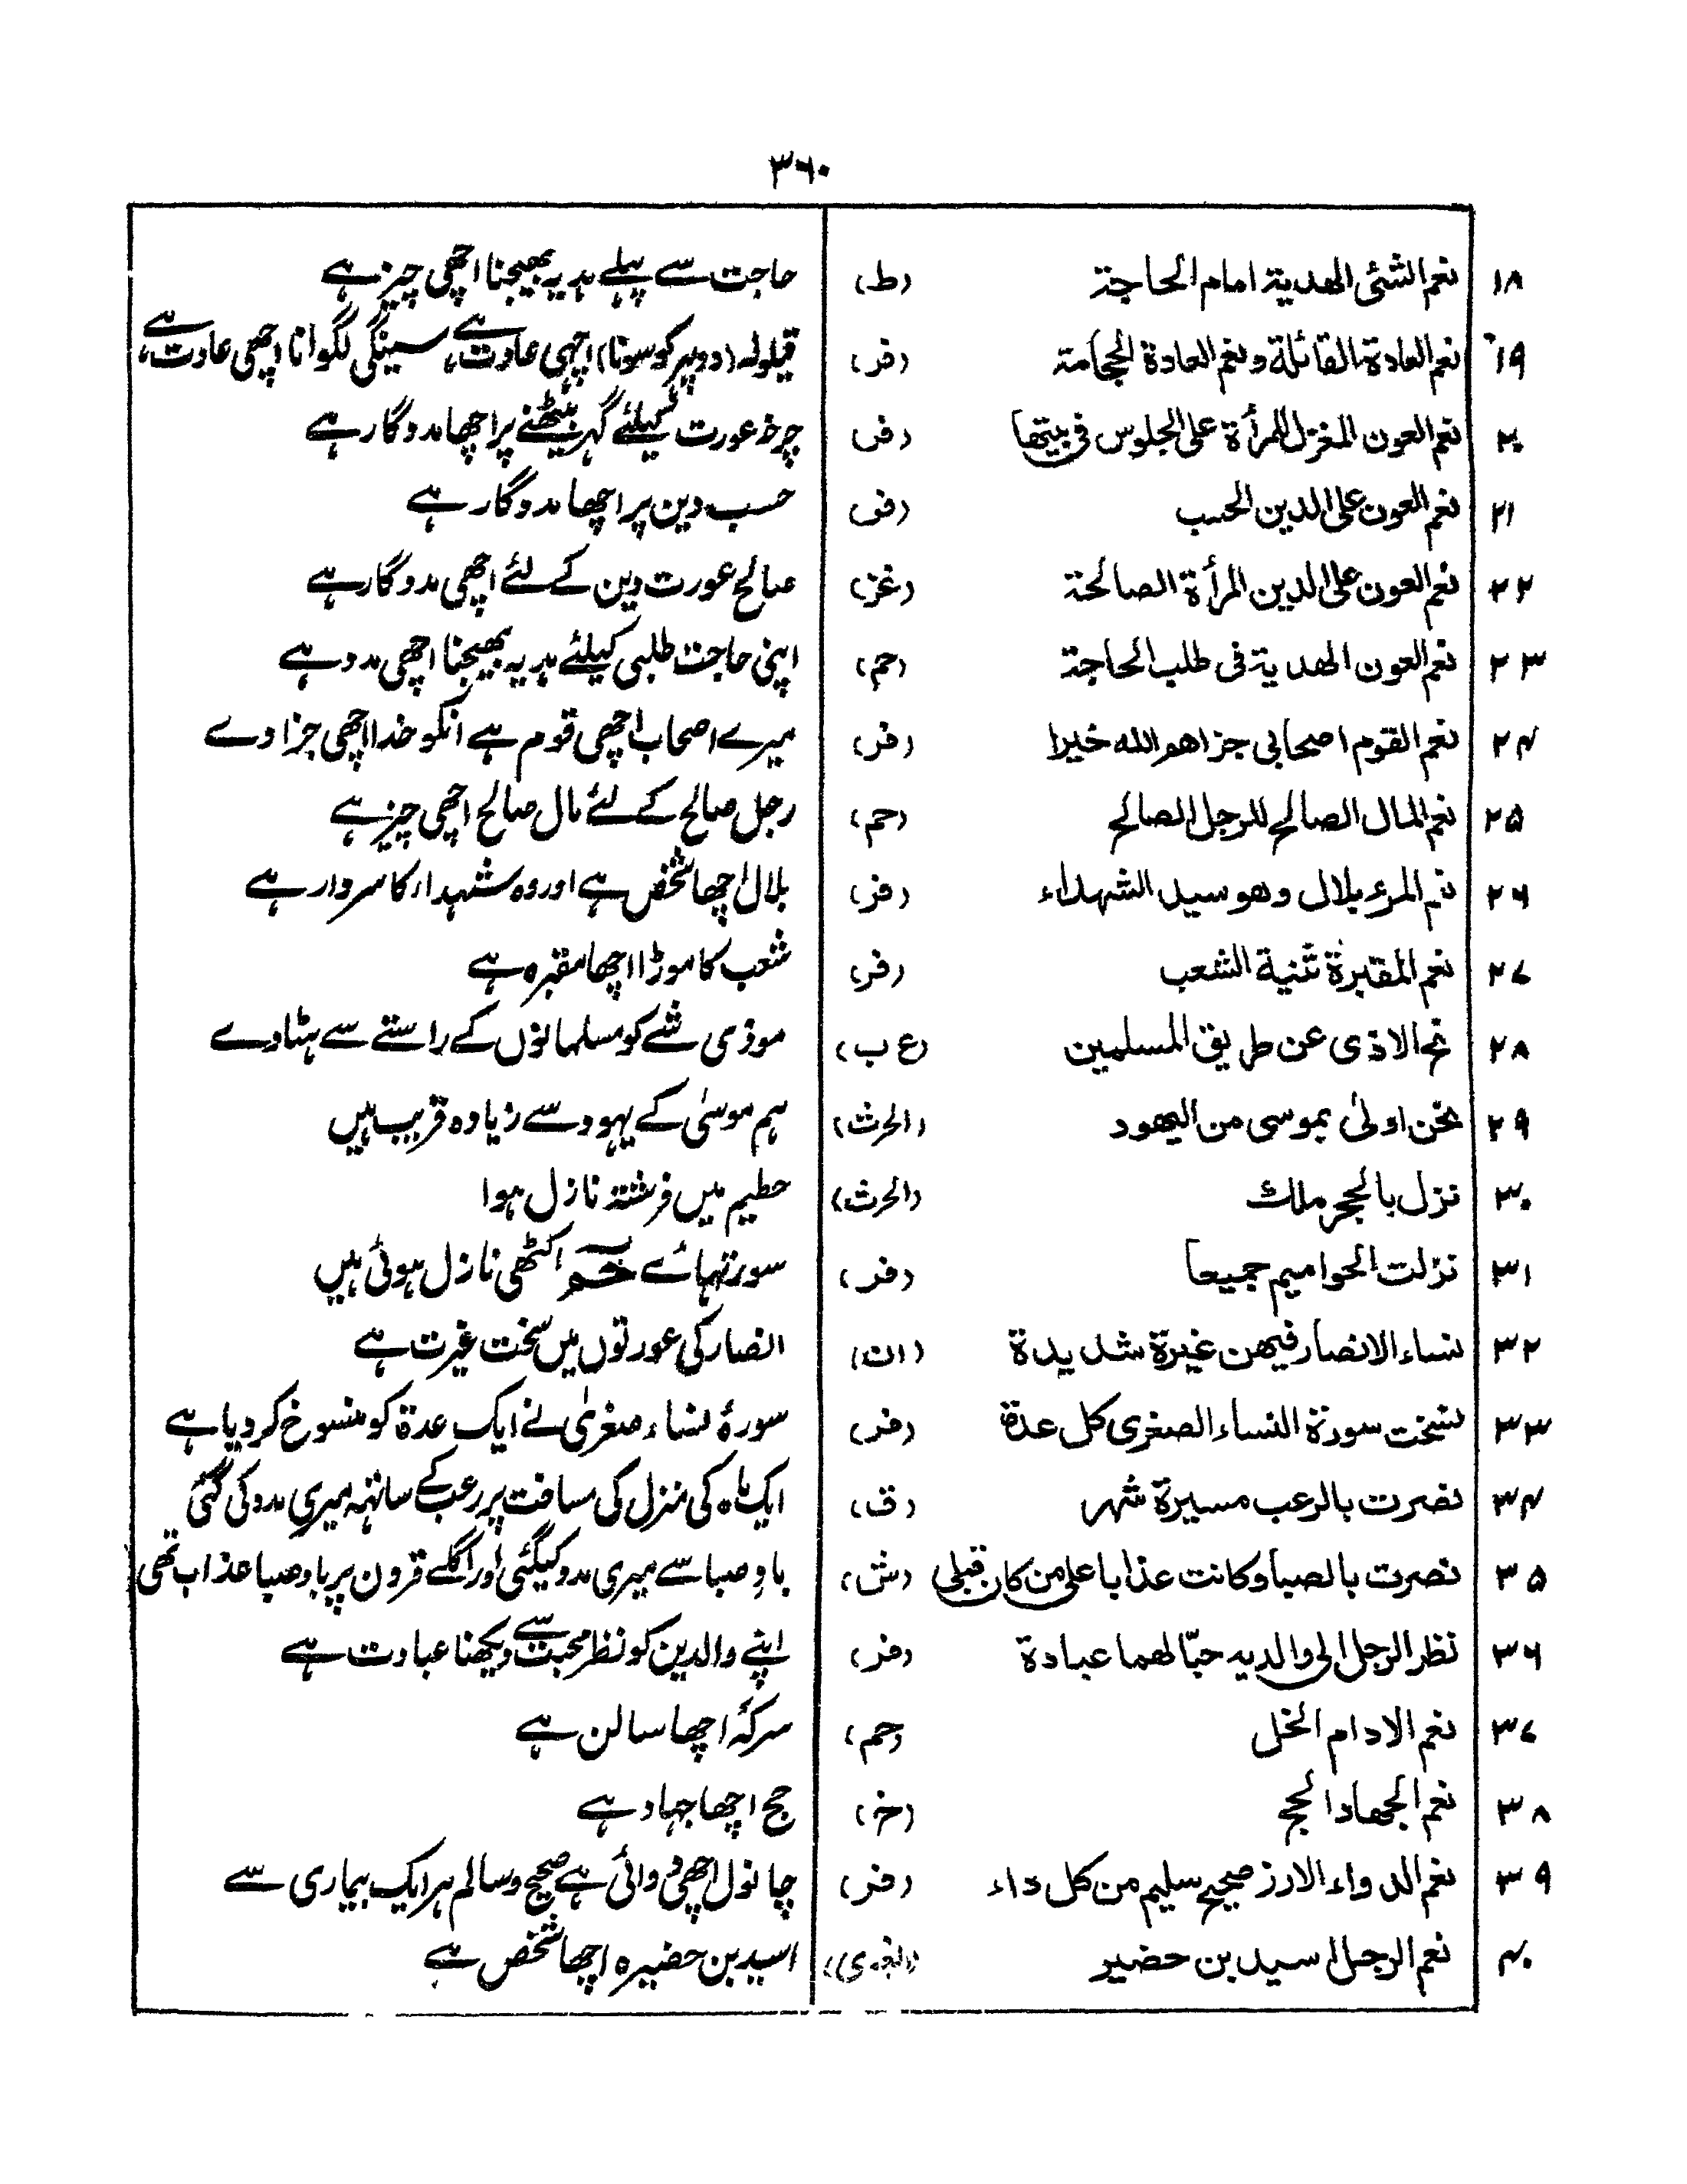 ۳۶۰
۱۸ نعم الشئی الهدیة امام الحاجة (ط) حاجت سے پہلے ہدیہ بھیجنا اچھی چیز ہے
۱۹ نعم العادة القائلة ونعم العادة الحجامة (فر) قیلولہ (دوپہر کو سونا) اچھی عادت ہے، سینگی لگوانا اچھی عادت ہے،
۲۰ نعم العون المغزل للمرأة علی الجلوس فی بیتها (فر) چرخہ عورت کیلئے گہر بیٹھنے پر اچھا مددگار ہے
۲۱ نعم العون علی الدین الحسب (فر) حسب دین پر اچھا مددگار ہے
۲۲ نعم العون علی الدین المرأة الصالحة (غز) صالح عورت دین کے لئے اچھی مددگار ہے
۲۳ نعم العون الهدیة فی طلب الحاجة (حم) اپنی حاجت طلبی کیلئے ہدیہ بھیجنا اچھی مدد ہے
۲۴ نعم القوم اصحابی جزاهم الله خیرا (فر) میرے اصحاب اچھی قوم ہے انکو خدا اچھی جزا دے
۲۵ نعم المال الصالح للرجل الصالح (حم) رجل صالح کے لئے مال صالح اچھی چیز ہے
۲۶ نعم المرء بلال وهو سید الشهداء (فر) بلال اچھا شخص ہے اور وہ شہداء کا سردار ہے
۲۷ نعم المقبرة ثنیة الشعب (فر) شعب کا موڑا اچھا مقبرہ ہے
۲۸ نح الاذی عن طریق المسلمین (ع ب) موذی شے کو مسلمانوں کے راستے سے ہٹا دے
۲۹ نحن اولی بموسی من الیهود (الحرث) ہم موسیٰ کے یہود سے زیادہ قریب ہیں
۳۰ نزل بالحجر ملك (الحرث) حطیم میں فرشتہ نازل ہوا
۳۱ نزلت الحوامیم جمیعا (فر) سورتہائے حٰم اکٹھی نازل ہوئی ہیں
۳۲ نساء الانصار فیهن غیرة شدیدة (ان) انصار کی عورتوں میں سخت غیرت ہے
۳۳ نسخت سورة النساء الصغری کل عدة (فر) سورۂ نساء صغریٰ نے ایک عدة کو منسوخ کر دیا ہے
۳۴ نصرت بالرعب مسیرة شهر (ق) ایک ماہ کی منزل کی مسافت پر رعب کے ساتھ میری مدد کی گئی
۳۵ نصرت بالصبا وکانت عذابا علی من کان قبلی (ش) بادِ صبا سے میری مدد کیگئی اور اگلے قرون پر بادِ صبا عذاب تھی
۳۶ نظر الرجل الی والدیه حبّا لهما عبادة (فر) اپنے والدین کو نظر محبت سے دیکھنا عبادت ہے
۳۷ نعم الادام الخل (حم) سرکہ اچھا سالن ہے
۳۸ نعم الجهاد الحج (خ) حج اچھا جہاد ہے
۳۹ نعم الدواء الارز صحیح سلیم من کل داء (فر) چانول اچھی دوائی ہے صحیح وسالم ہر ایک بیماری سے
۴۰ نعم الرجل اسید بن حضیر اسید بن حضیرہ اچھا شخص ہے